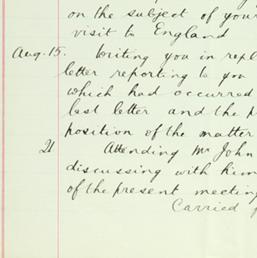 on the subject of your
visit to England
Aug. 15. Writing you in repl
letter reporting to you
which had occurred
last letter and the p
position of the matter
21 Attending Mr John
discussing with him
of the present meeting
Carried f